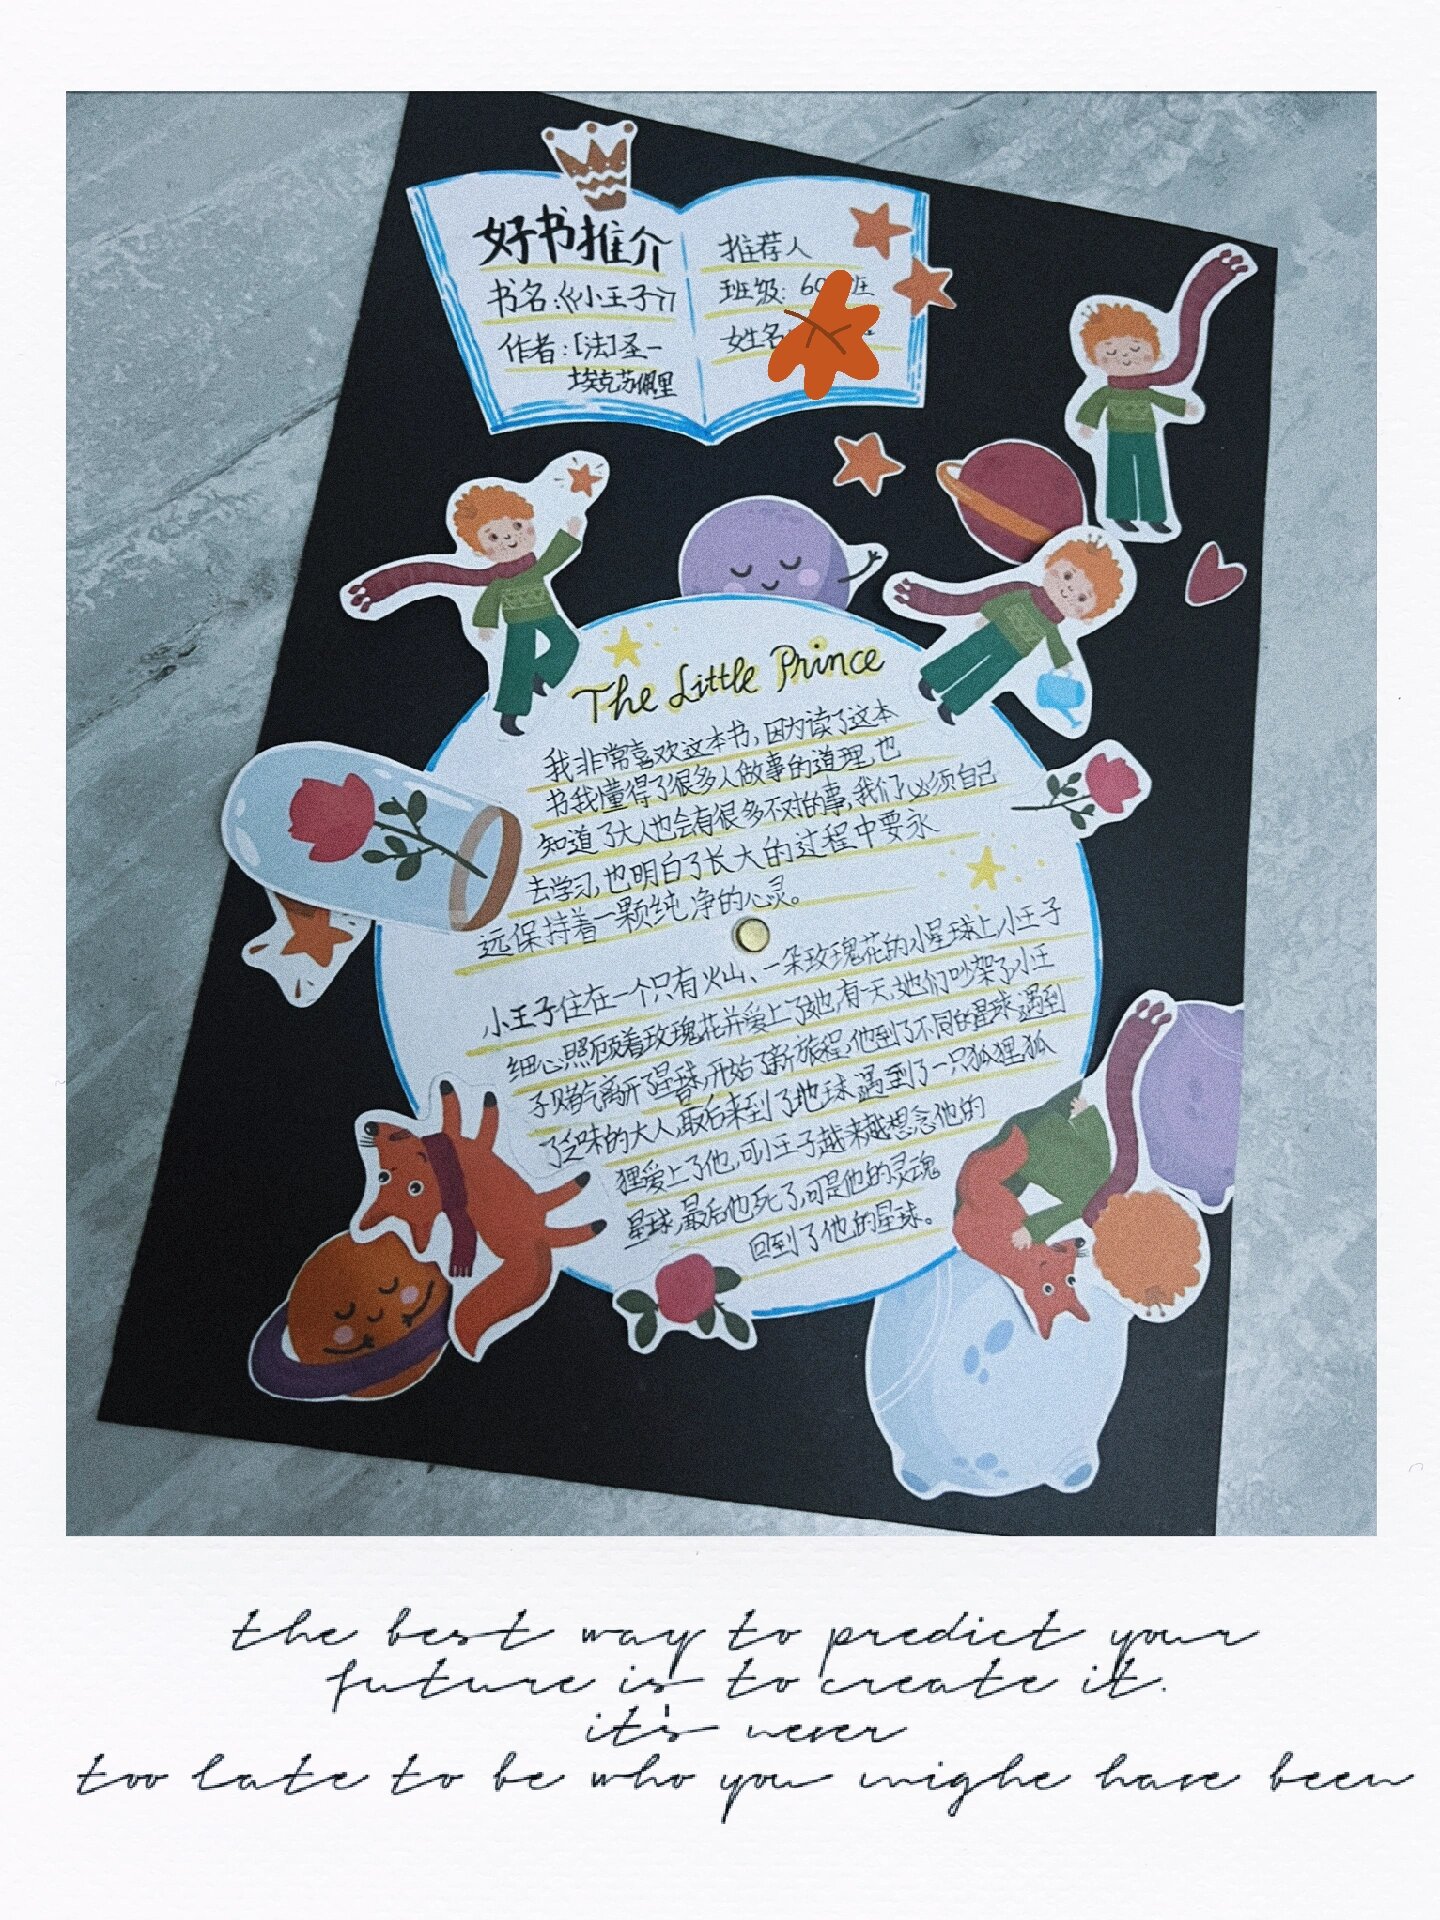 好书推介
书名:《小王子》
作者:[法]圣一
埃克苏佩里
推荐人
班级: 60 班
姓名
The Little Prince
我非常喜欢这本书,因为读了这本
书我懂得了很多人做事的道理,也
知道了大人也会有很多不对的事,我们必须自己
去学习,也明白了长大的过程中要永
远保持着一颗纯净的心灵。
小王子住在一个只有火山、一朵玫瑰花的小星球上,小王子
细心照顾着玫瑰花并爱上了她,有一天,她们吵架了,小王
子赌气离开了星球,开始了新旅程,他到了不同的星球,遇到
了乏味的大人,最后来到了地球,遇到了一只狐狸,狐
狸爱上了他,可小王子越来越想念他的
星球,最后他死了,可是他的灵魂
回到了他的星球。
the best way to predict your
future is to create it.
it's never
too late to be who you mighe have been